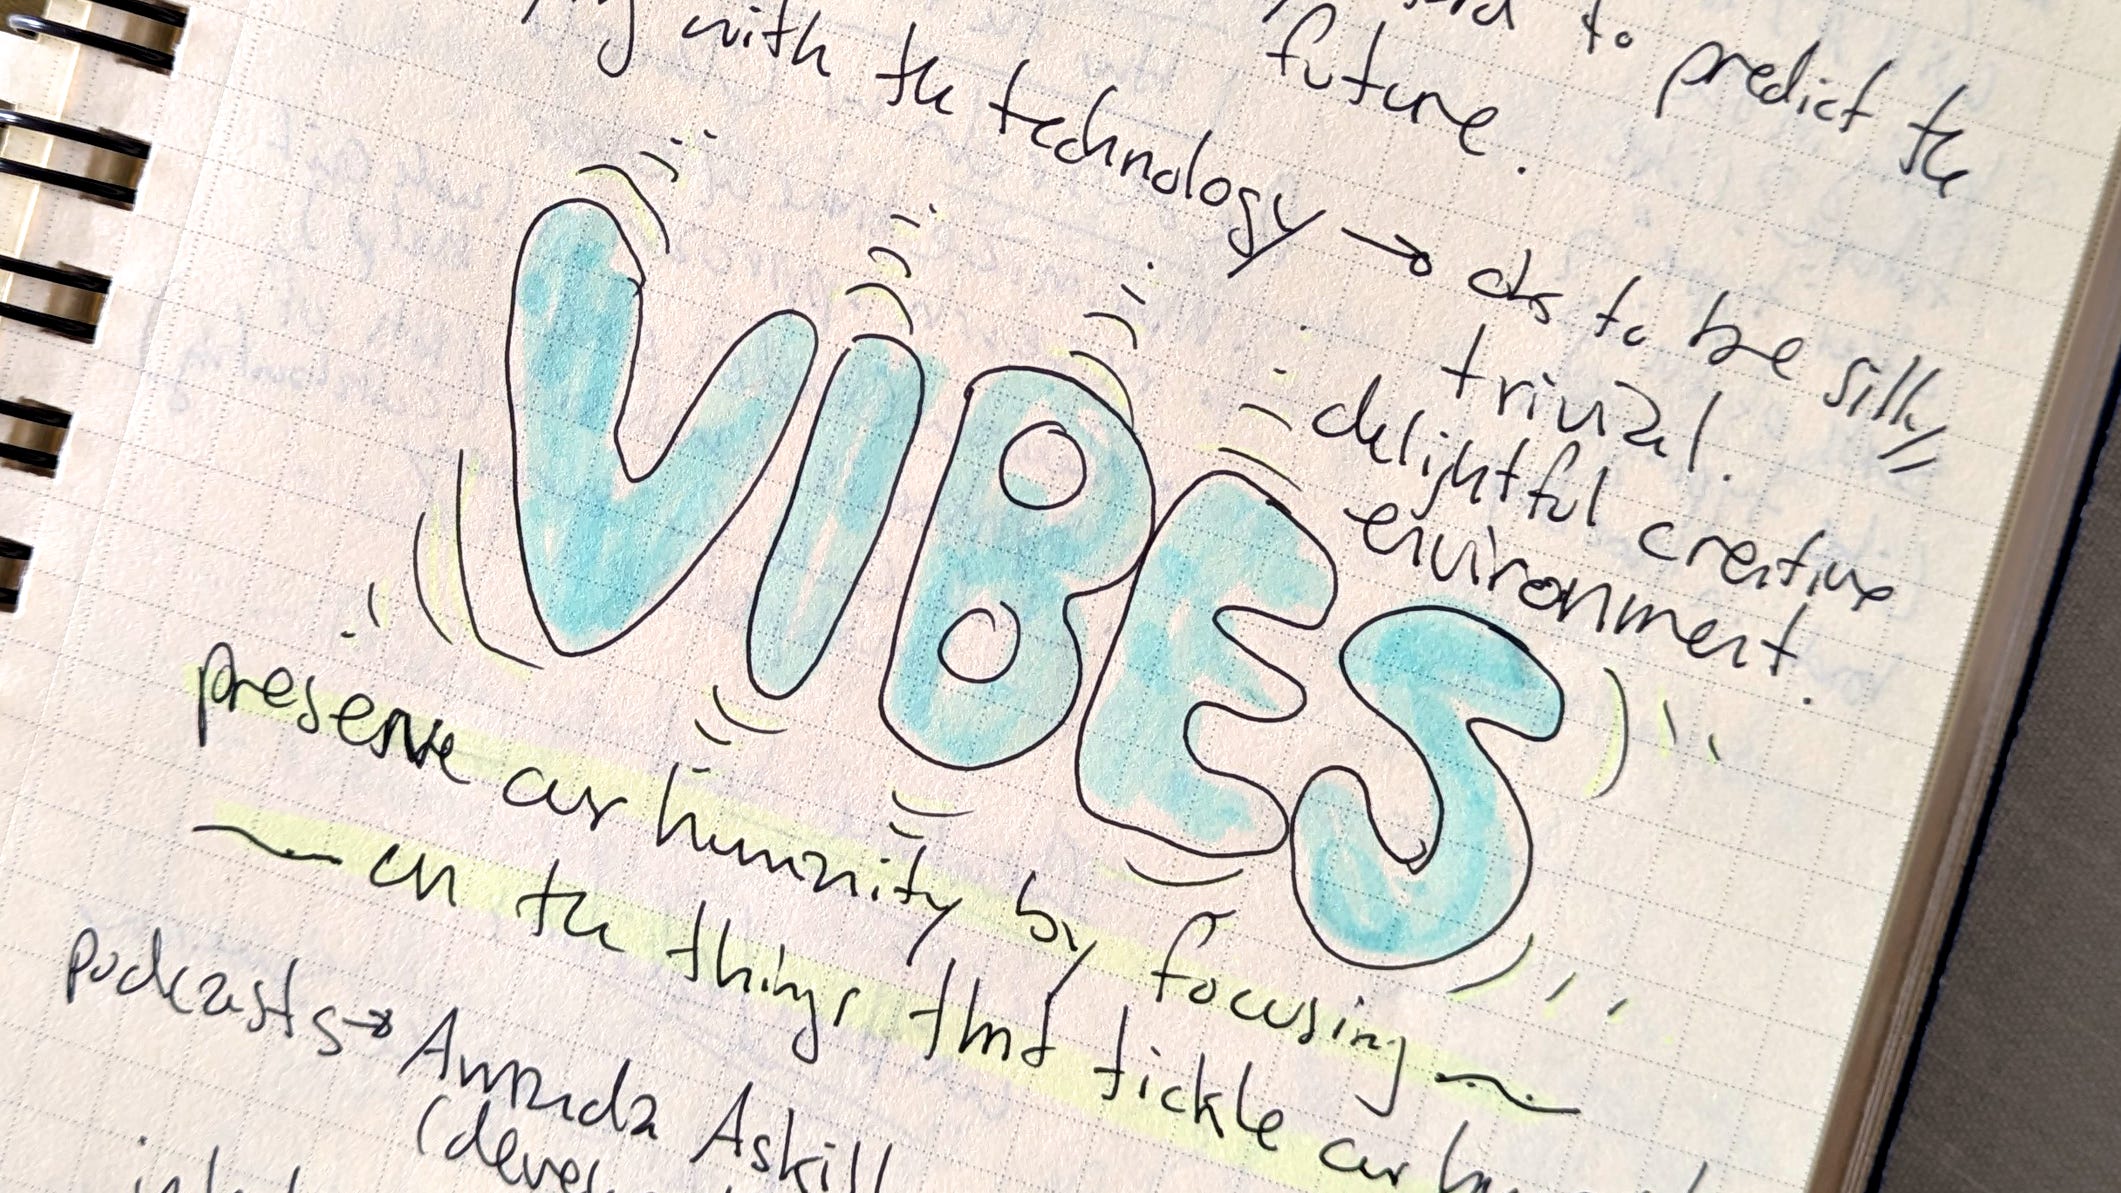 to predict the
future.
with the technology → ok to be silly,
trivial.
delightful creative
environment.
VIBES
preserve our humanity by focusing
on the things that tickle our
podcasts → Amanda Askill
(devel